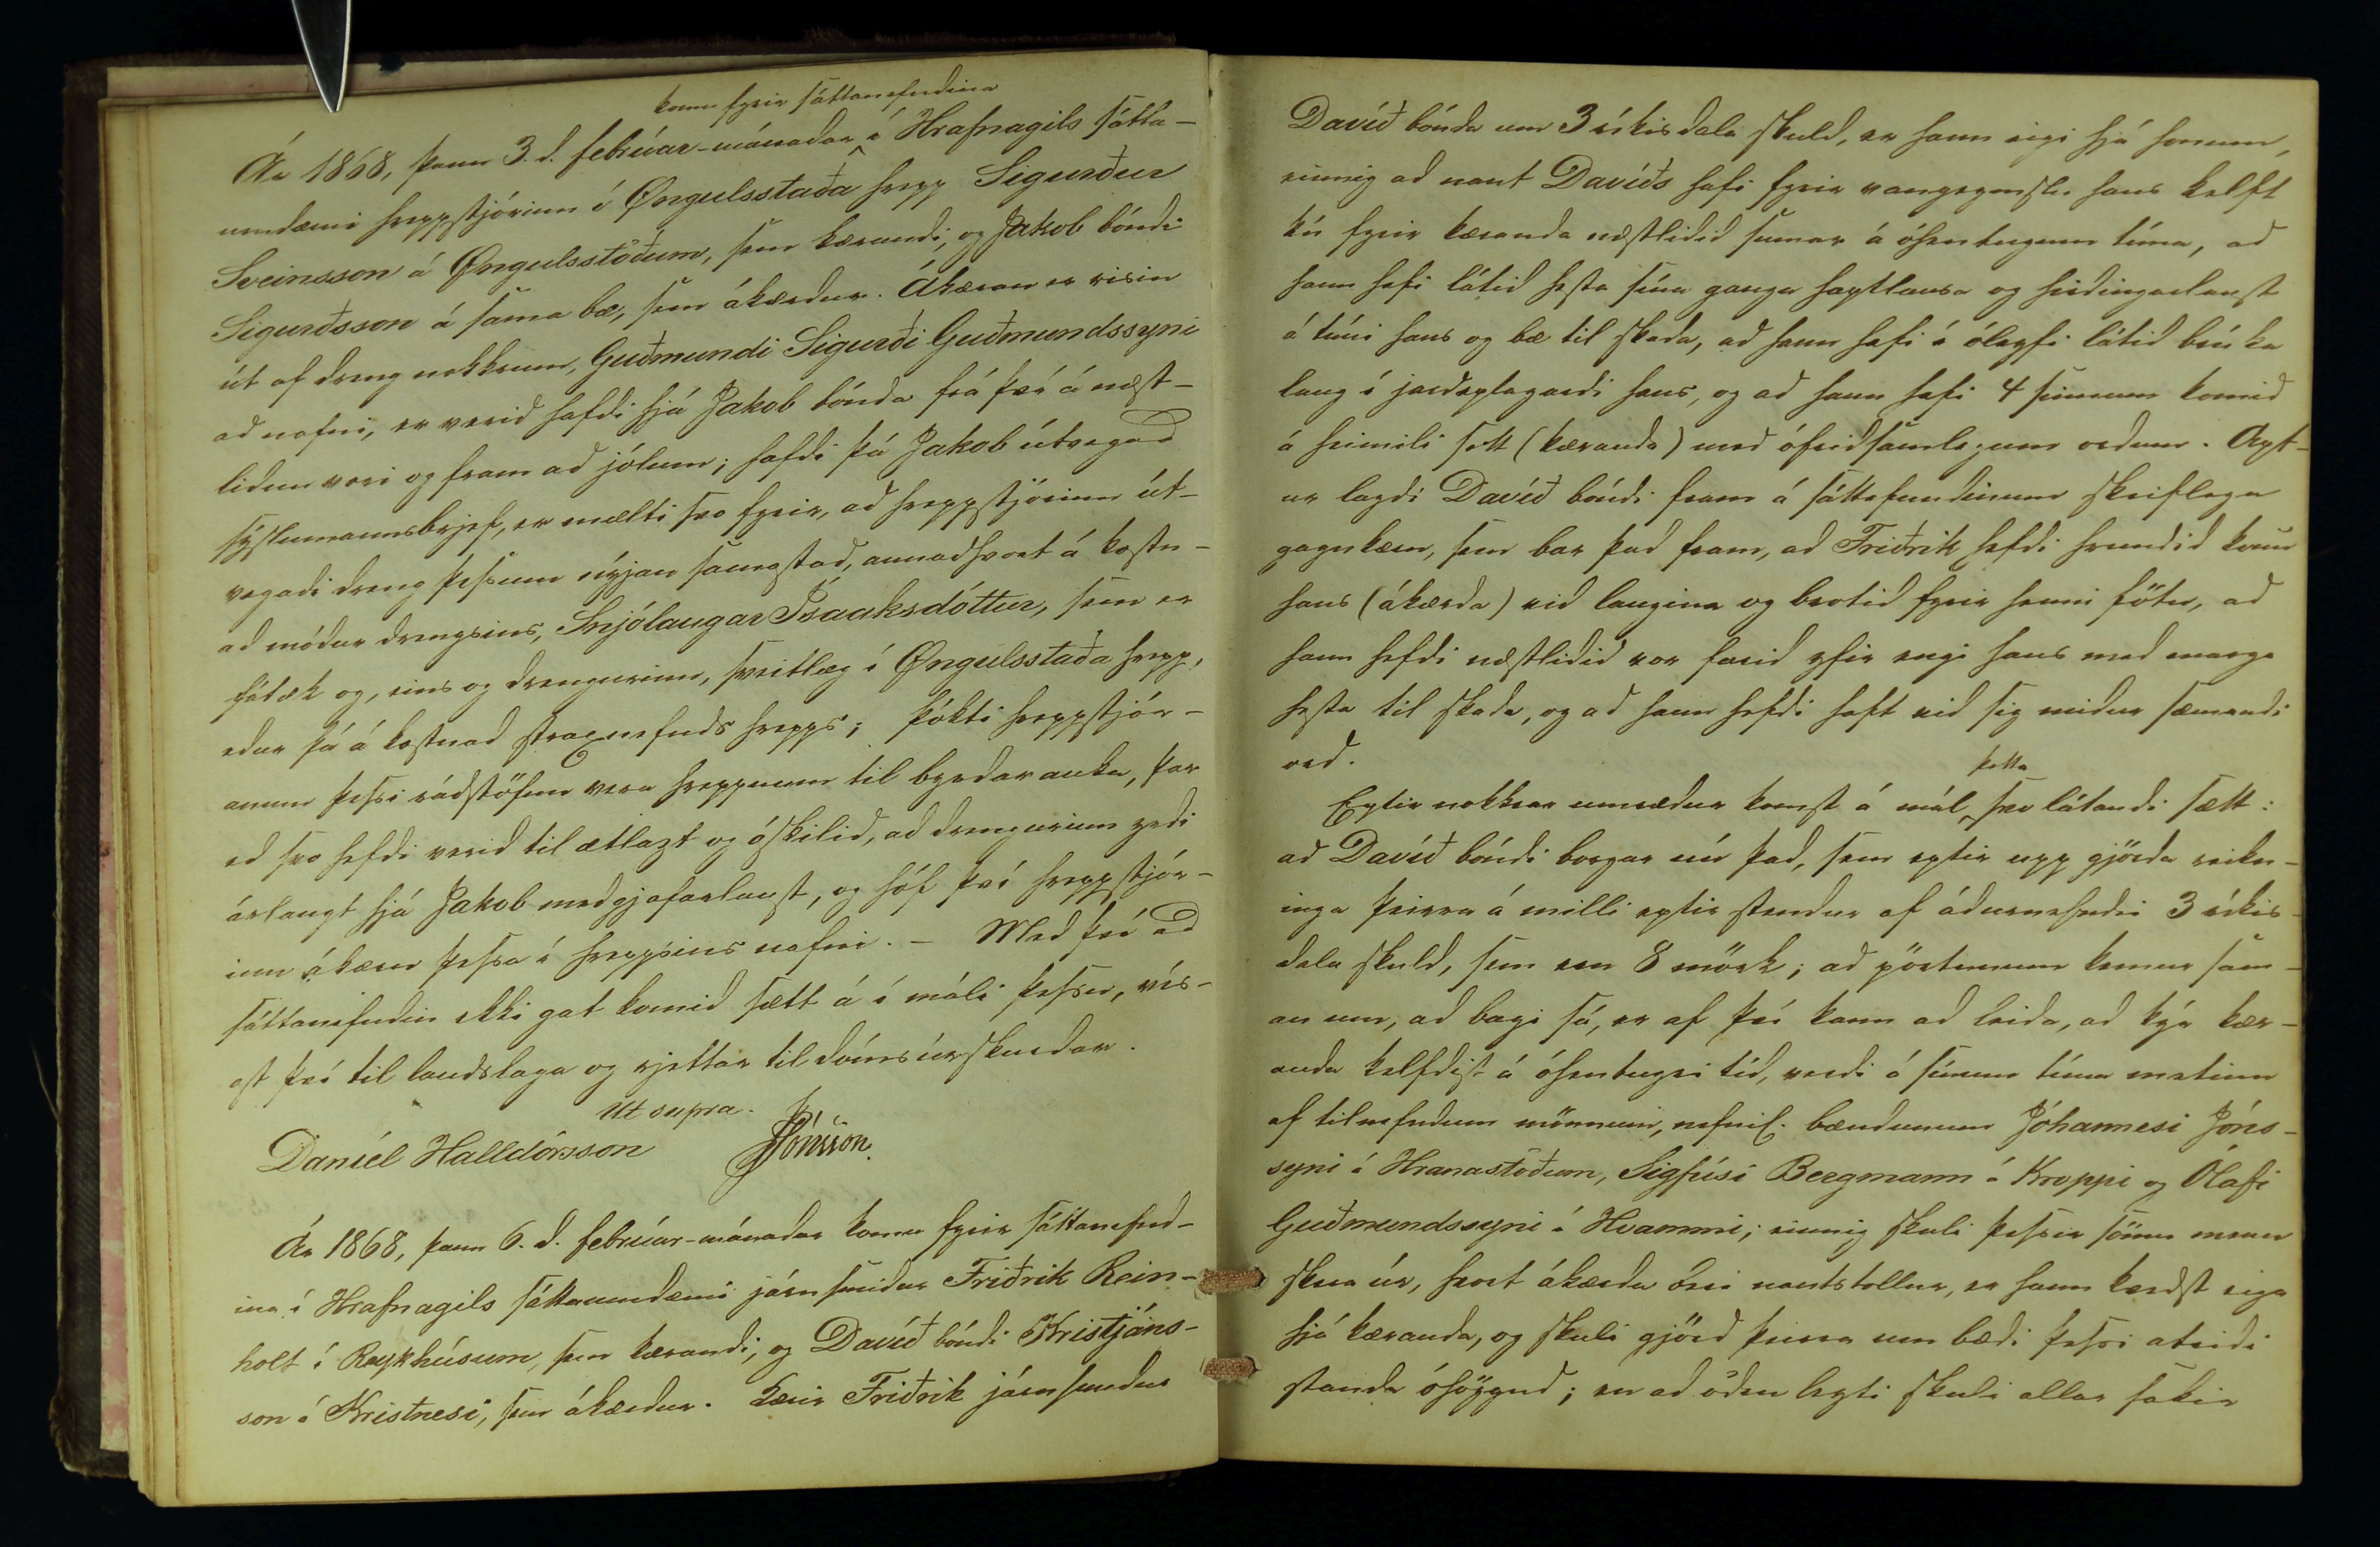 komu fyrir sáttanefndina
Ár 1868, þann 3. d. febrúar-mánaðar í Hrafnagils sátta-
umdæmi hreppstjórinn í Öngulsstaða hrepp Sigurður
Sveinsson á Öngulsstöðum, sem kærandi, og Jakob bóndi
Sigurðsson á sama bæ, sem ákærður. Ákæran er risin
út af dreng nokkrum, Guðmundi Sigurði Guðmundssyni
að nafni, er verið hafði hjá Jakob bónda frá því á næst-
liðnu vori og fram að jólum; hafði þá Jakob útvegað
sýslumannsbrjef, er mælti svo fyrir, að hreppstjórinn út-
vegaði dreng þessum nýjan samastað, annaðhvort á kostn-
að móður drengsins, Snjólaugar Ísaaksdóttur, sem er
fátæk og, eins og drengurinn, sveitlæg í Öngulsstaða hrepp,
eður þá á kostnað straxnefnds hrepps; þókti hreppstjór-
anum þessi ráðstöfun vera hreppnum til byrðarauka, þar
eð svo hefði verið til ætlazt og óskilið, að drengurinn yrði
árlangt hjá Jakob meðgjafarlaust, og hóf því hreppstjór-
inn ákæru þessa í hreppsins nafni. – Með því að
sáttanefndin ekki gat komið sætt á í máli þessu, vís-
ast því til landslaga og rjettar til dómsúrskurðar.
Ut supra.
Daníel Halldórsson JJónsson.
Ár 1868, þann 6. d. febrúar-mánaðar komu fyrir sáttanefnd-
ina í Hrafnagils sáttaumdæmi járnsmiður Friðrik Rein-
holt í Reykhúsum, sem kærandi, og Davíð bóndi Kristjáns-
son á Kristnesi, sem ákærður. Kærir Friðrik járnsmiður
Davíð bónda um 3 ríkisdala skuld, er hann eigi hjá honum,
einnig að naut Davíðs hafi fyrir vangeymslu hans kelft
kú fyrir kæranda næstliðið sumar á óhentugum tíma, að
hann hafi látið hesta sína ganga haptlausa og hirðingarlaust
á túni hans og bæ til skaða, að hann hafi í óleyfi látið brúka
laug í jarðeplagarði hans, og að hann hafi 4 sinnum komið
á heimili sitt (kæranda) með ófriðsamlegum orðum. Apt-
ur lagði Davíð bóndi fram á sáttafundinum skriflega
gagnkæru, sem bar það fram, að Friðrik hefði hrundið konu
hans (ákærða) við laugina og brotið fyrir henni fötu, að
hann hefði næstliðið vor farið yfir engi hans með marga
hesta til skaða, og að hann hefði haft við sig miður sæmandi
orð.
þetta
Eptir nokkrar umræður komst á mál svo látandi sætt:
að Davíð bóndi borgar nú það, sem eptir upp gjörða reikn-
inga þeirra á milli eptir stendur af áðurnefndri 3 ríkis-
dala skuld, sem eru 8 mörk; að pörtunum kemur sam-
an um, að bagi sá, er af því kann að leiða, að kýr kær-
anda kelfdist á óhentugri tíð, verði á sínum tíma metinn
af tilnefndum mönnum, nefnil. bændunum Jóhannesi Jóns-
syni á Hranastöðum, Sigfúsi Bergmann á Kroppi og Ólafi
Guðmundssyni í Hvammi; einnig skuli þessir sömu menn
skera úr, hvort ákærða beri nautstollur, er hann kveðst eiga
hjá kæranda, og skuli gjörð þeirra um bæði þessi atriði
standa óhögguð; en að öðru leyti skuli allar sakir